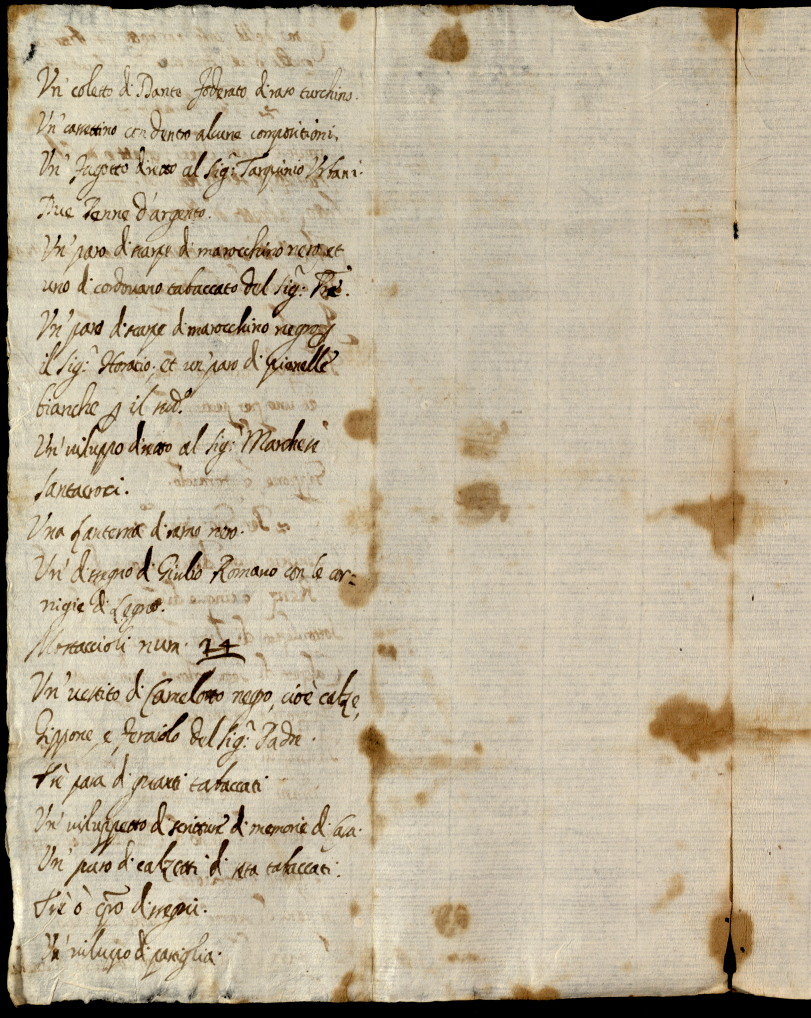 Un' coletto di Dante foderato di raso turchino.
Un' cassettino con dentro alcune compositioni.
Un' fagotto diretto al Sig.r Tarquinio Urbani.
Due Penne d'argento.
Un' paro di scarpe di marocchino nero et
uno di cordovano tabaccato del Sig.r
Un' paro di scarpe di marocchino negro p
il Sig.r Horatio, et un' paro di pianelle
bianche p il med.o
Un' viluppo diretto al Sig.r Marchese
Santacroci.
Una Lanterna di ramo nero.
Un' dissegno di Giulio Romano con le cor-
nigie di Legno.
Mostaccioli num. 24
Un' vestito di Camelotto negro, cioè calze,
Gippone, e feraiolo del Sig.r Padre.
Trè para di guanti tabaccati
Un' viluppetto di scritture di memorie di Casa.
Un' paro di calzetti di seta tabaccati.
Trè ò qtro disegni.
Un' viluppo di